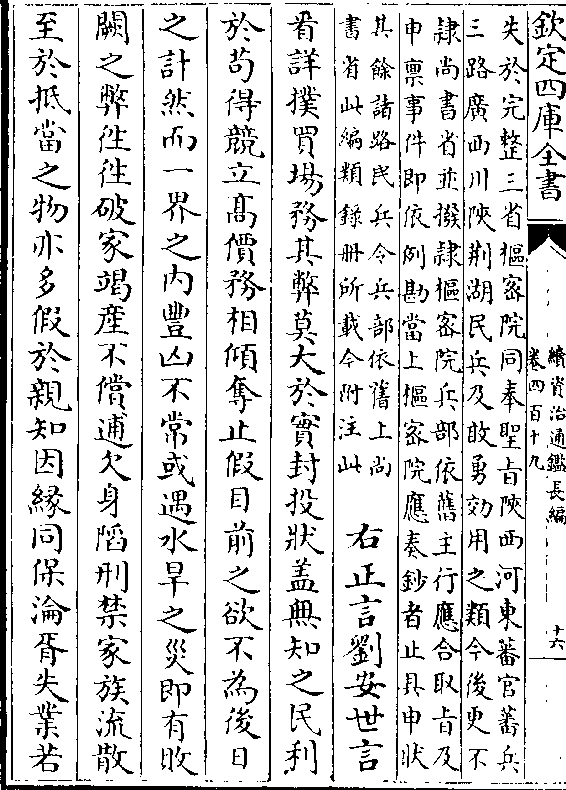 欽定四庫全書
續資治通鑑長編
卷四百十九
十六
失於完整三省樞密院同奉聖旨陝西河東蕃官蕃兵
三路廣西川陝荆湖民兵及敢勇効用之類今後更不
隷尚書省並撥隷樞密院兵部依舊主行應合取旨及
申稟事件即依例勘當上樞密院應奏鈔者止具申狀
其餘諸路民兵令兵部依舊上尚
書省此編類錄冊所載今附注此
右正言劉安世言
看詳撲買場務其弊莫大於實封投狀盖無知之民利
於茍得競立髙價務相傾奪止假目前之欲不為後日
之計然而一界之內豐凶不常或遇水旱之災即有敗
闕之弊徃徃破家竭産不償逋欠身陷刑禁家族流散
至於抵當之物亦多假於親知因緣同保淪胥失業若